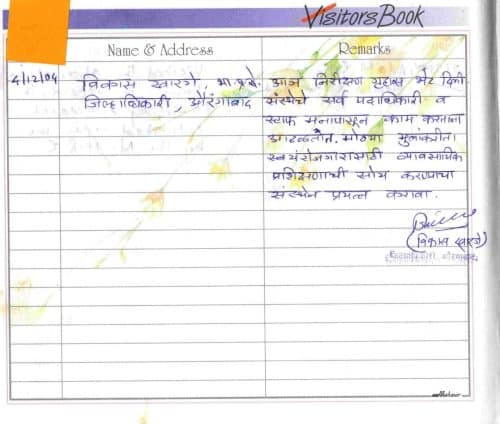 Visitors Book
Name & Address
Remarks
4/12/04
विकास खारगे भा.प्र.से.
जिल्हाधिकारी, औरंगाबाद
आज निरीक्षण गृहास भेट दिली.
संस्थेचे सर्व पदाधिकारी व
स्टाफ मनापासून काम करताना
आढळतात. मोठ्या मुलांकरीता
स्वयंरोजगारासाठी व्यावसायिक
प्रशिक्षणाची सोय करण्याचा
संस्थेने प्रयत्न करावा.
(विकास खारगे)
जिल्हाधिकारी, औरंगाबाद